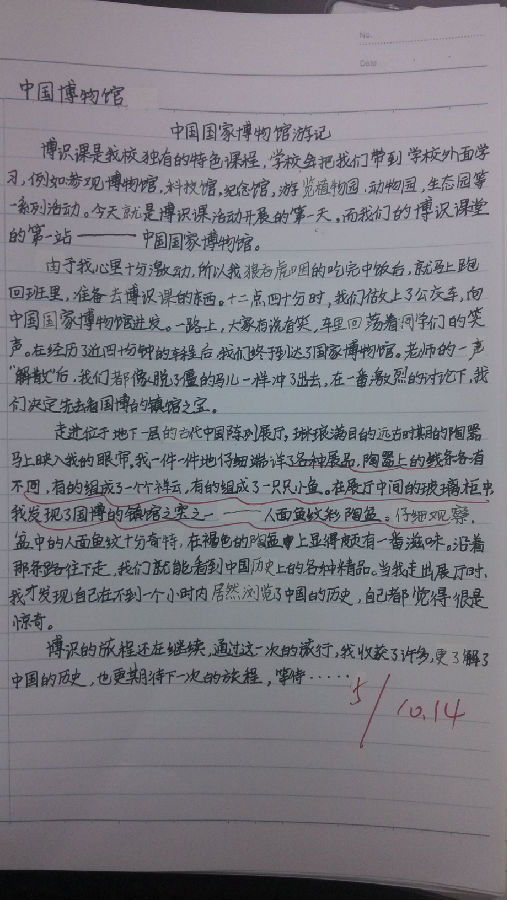 No.
Date
中国博物馆
中国国家博物馆游记
博识课是我校独有的特色课程，学校会把我们带到学校外面学
习，例如参观博物馆，科技馆，纪念馆，游览植物园，动物园，生态园等
一系列活动。今天就是博识课活动开展的第一天。而我们的博识课堂
的第一站——中国国家博物馆。
由于我心里十分激动，所以我狼吞虎咽的吃完中饭后，就马上跑
回班里，准备去博识课的东西。十二点四十分时，我们做上了公交车，向
中国国家博物馆进发。一路上，大家有说有笑，车里回荡着同学们的笑
声。在经历了近四十分钟的车程后，我们终于到达了国家博物馆。老师的一声
“解散”后，我们都像脱了僵的马儿一样冲了出去，在一番激烈的讨论下，我
们决定先去看国博的镇馆之宝。
走进位于地下一层的古代中国陈列展厅，琳琅满目的远古时期的陶器
马上映入我的眼帘，我一件一件地仔细端详了各种展品，陶器上的线条各有
不同，有的组成了一个个祥云，有的组成了一只只小鱼。在展厅中间的玻璃柜中，
我发现了国博的镇馆之宝之一——人面鱼纹彩陶盆。仔细观察，
盆中的人面鱼纹十分奇特，在褐色的陶盆中上显得颇有一番滋味。沿着
那条路往下走，我们就能看到中国历史上的各种精品。当我走出展厅时，
我才发现自己在不到一个小时内居然浏览了中国的历史，自己都觉得很是
惊奇。
博识的旅程还在继续，通过这一次的旅行，我收获了许多，更了解了
中国的历史，也更期待下一次的旅程，等待……
5/10.14